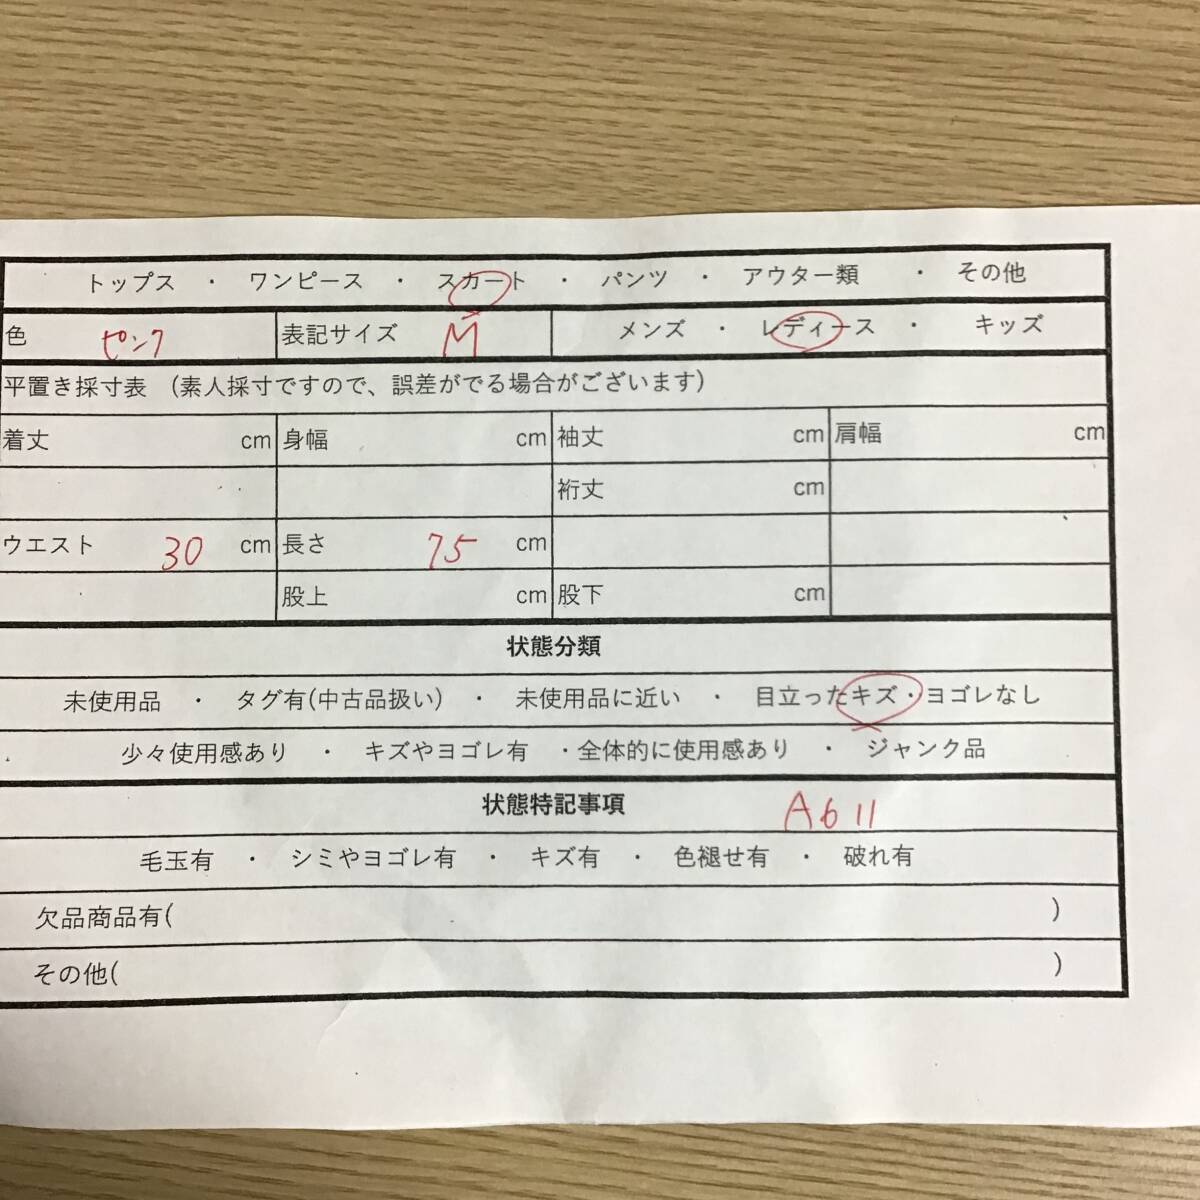 トップス ・ ワンピース ・ スカート ・ パンツ ・ アウター類 ・ その他
色 ピンク 表記サイズ M メンズ ・ レディース ・ キッズ
平置き採寸表 (素人採寸ですので、誤差がでる場合がございます)
着丈 cm 身幅 cm 袖丈 cm 肩幅 cm
裄丈 cm
ウエスト 30 cm 長さ 75 cm
股上 cm 股下 cm
状態分類
未使用品 ・ タグ有(中古品扱い) ・ 未使用品に近い ・ 目立ったキズ・ヨゴレなし
少々使用感あり ・ キズやヨゴレ有 ・全体的に使用感あり ・ ジャンク品
状態特記事項 A611
毛玉有 ・ シミやヨゴレ有 ・ キズ有 ・ 色褪せ有 ・ 破れ有
欠品商品有( )
その他( )